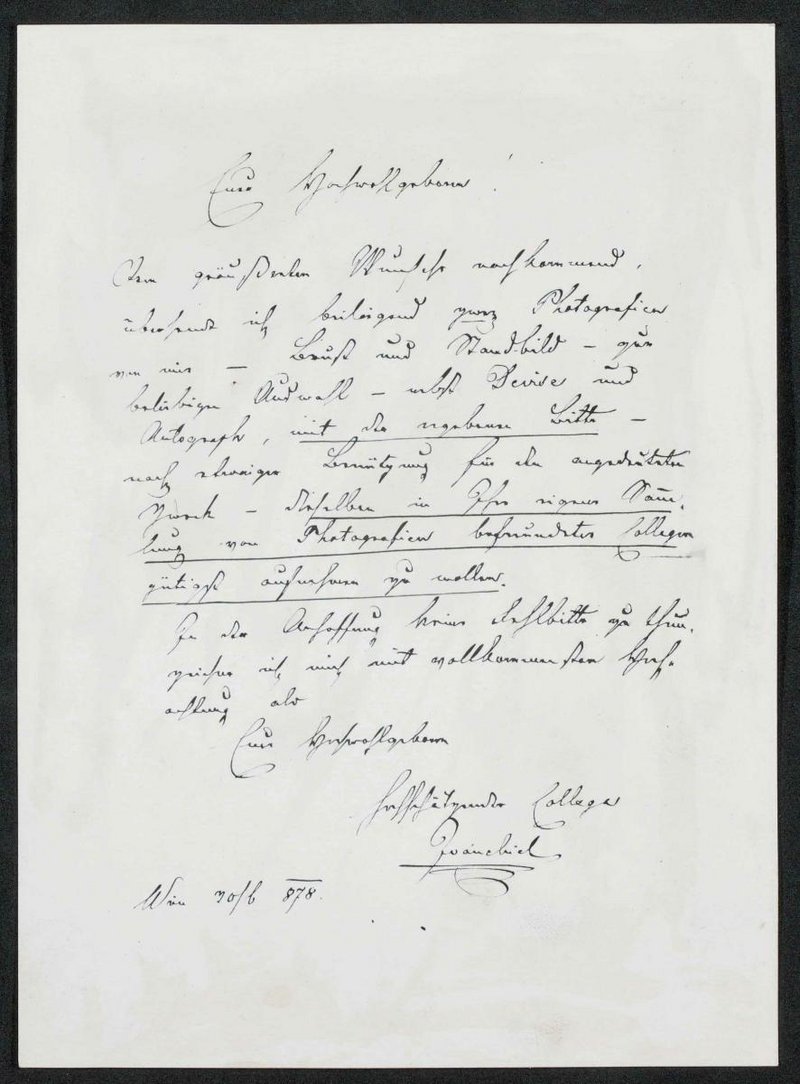 Euer Hochwohlgeboren!
Dem geäußerten Wunsche nachkommend,
übersende ich beiliegend zwei Photografien
von mir — Brust und Standbild — zur
beliebigen Auswahl — nebst Devise und
Autografe, mit der ergebenen Bitte —
nach etwaiger Benützung für den angedeuteten
Zweck — dieselben in Ihre eigene Samm-
lung von Photografien befreundeter Collegen
gütigst aufnehmen zu wollen.
In der Anhoffnung keine Fehlbitte zu thun,
zeichne ich mich mit vollkommenster Hoch-
achtung als
Euer Hochwohlgeboren
hochschätzender College
Wien 878.